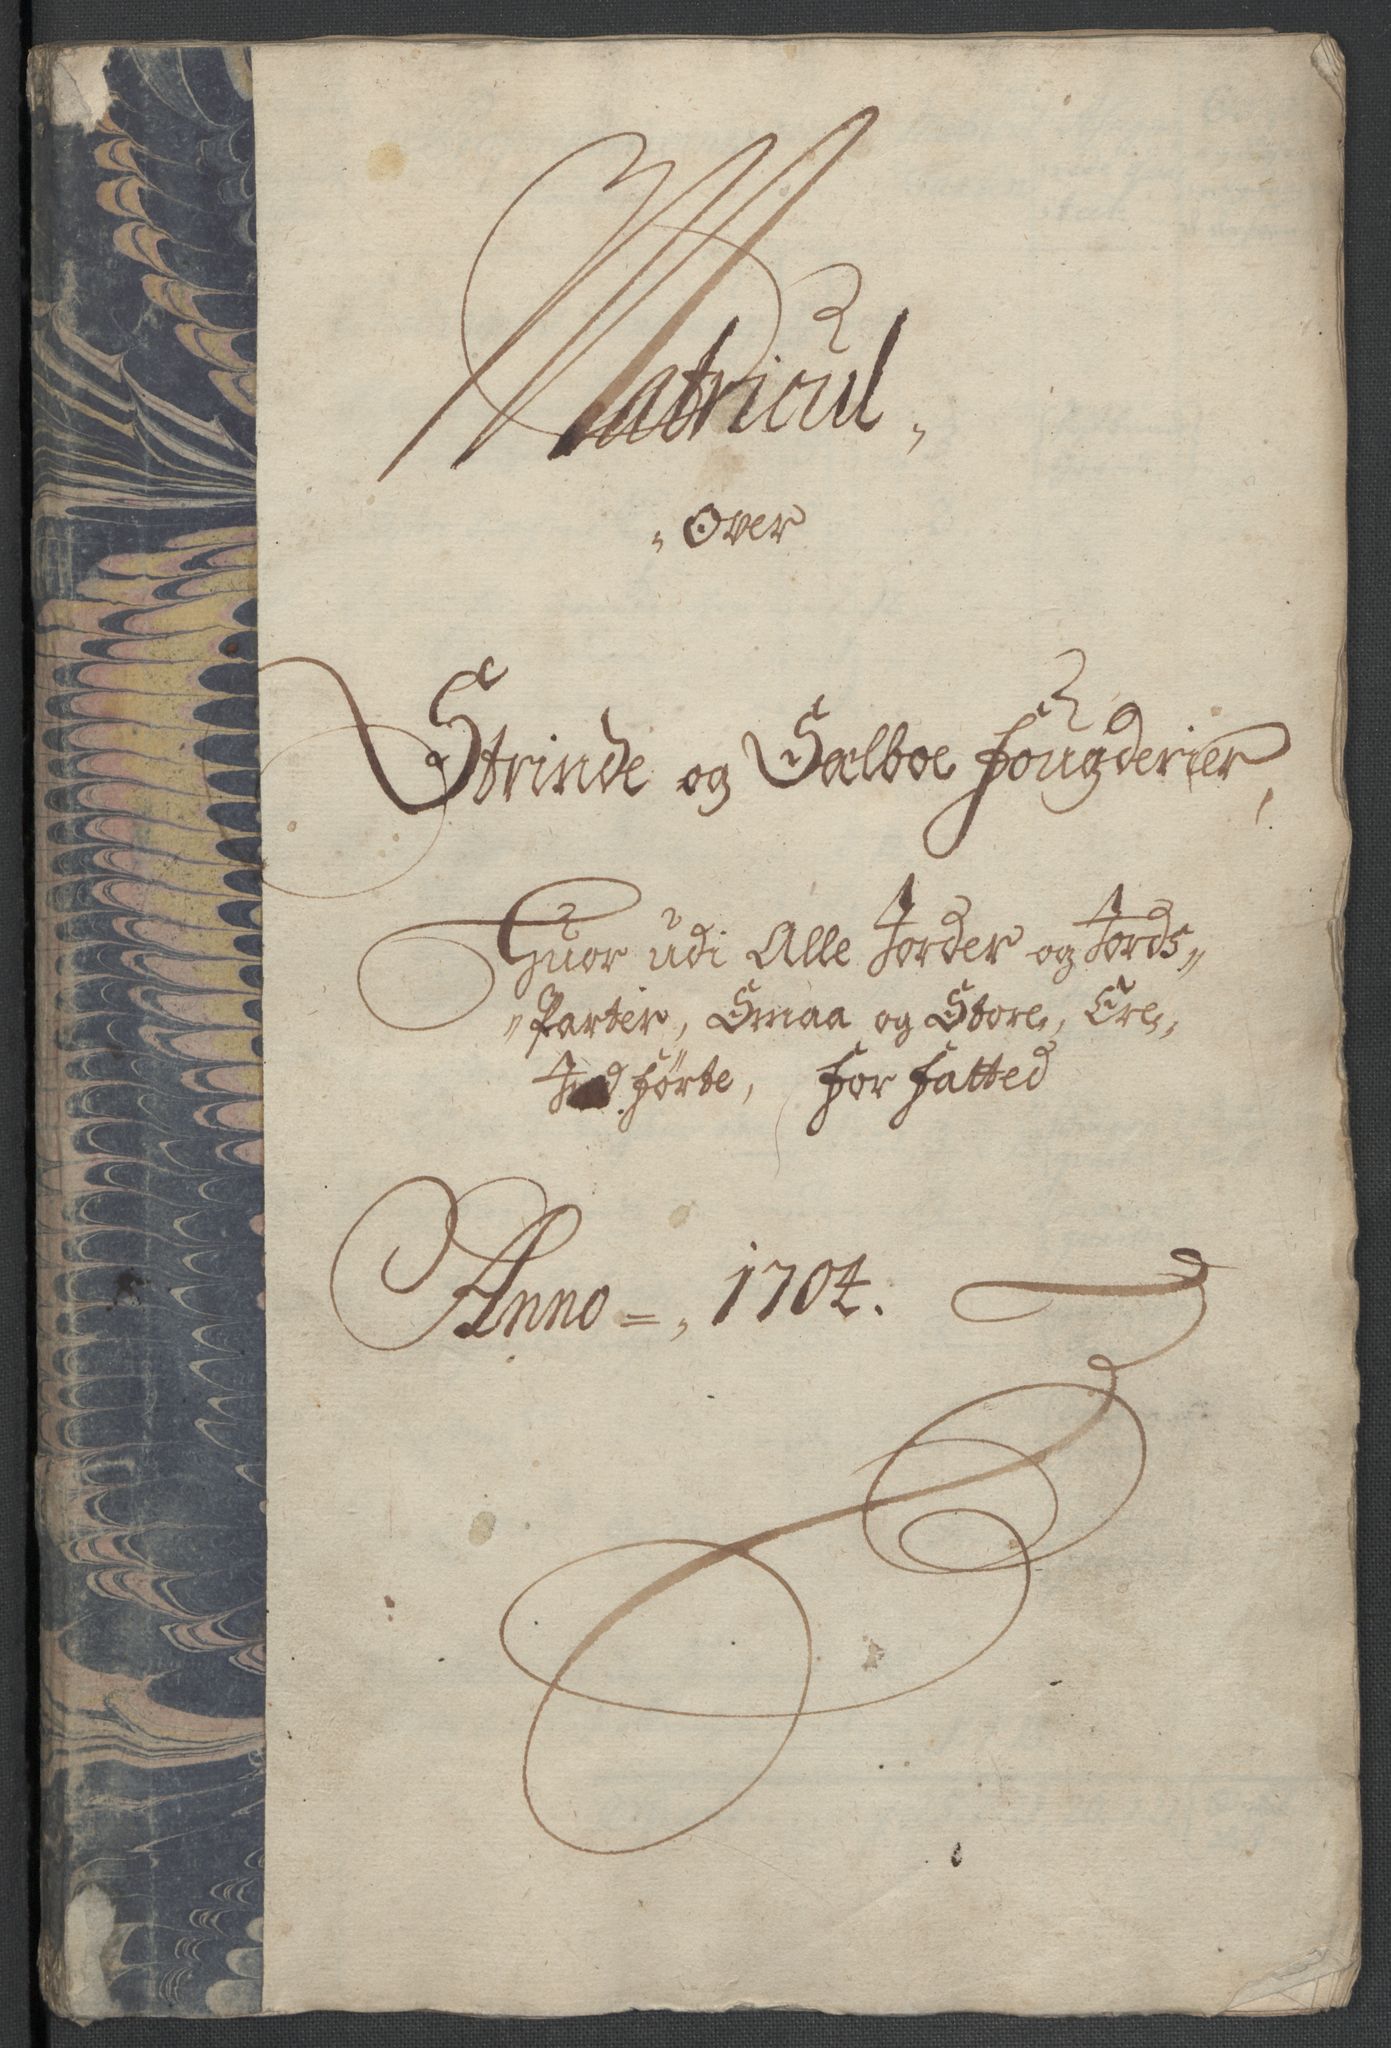 Matricul,
Over
Strinde og Sælboe fougderier,
Huor udi Alle Jorder og Jords
Parter, Smaa og Store, Ere,
Ind førte, for fatted
Anno =, 1704.